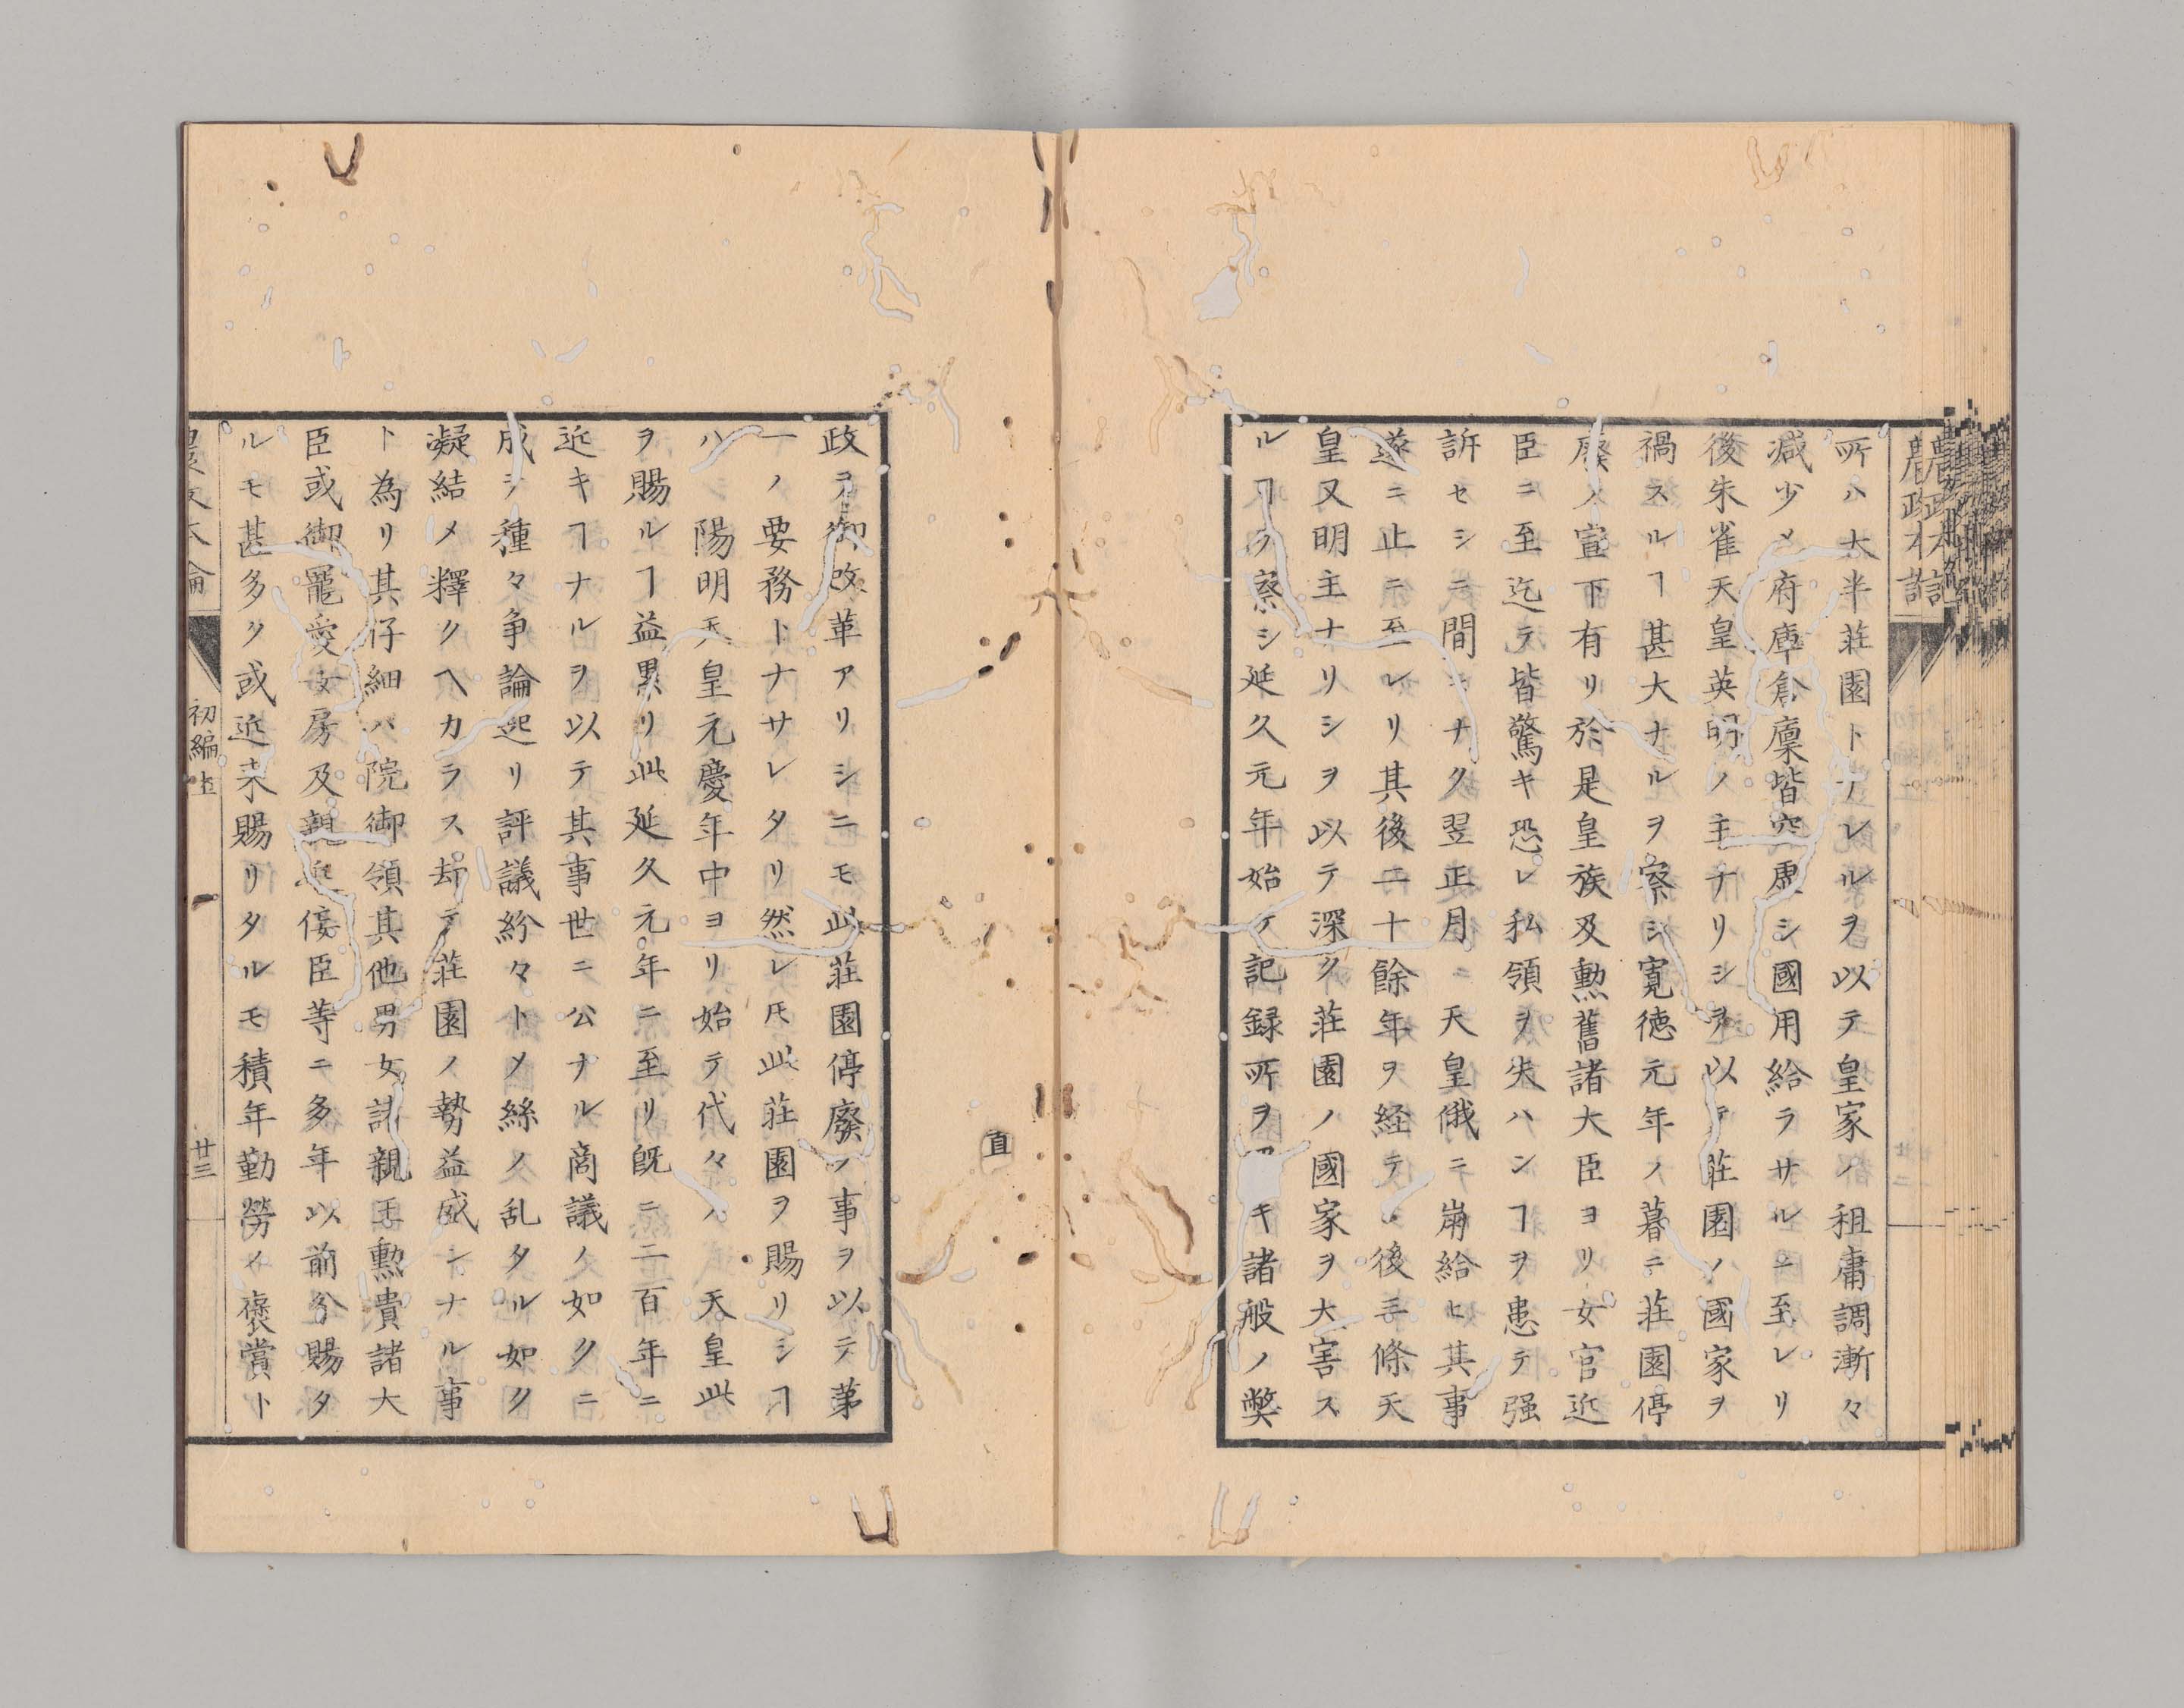 所ハ大半莊園トナレルヲ以テ皇家ノ租庸調漸々
減少メ府庫倉廩皆空虚シ國用給ラサルニ至レリ
後朱雀天皇英明ノ主ナリシヲ以テ莊園ノ國家ヲ
禍スルヿ甚大ナルヲ察シ寛徳元年ノ暮ニ莊園停
廢ノ宣下有リ於是皇族及勲舊諸大臣ヨリ女官近
臣ニ至迄テ皆驚キ恐レ私領ヲ失ハンヿヲ患テ强
訴セシニ間ニナク翌正月ニ天皇俄ニ崩給ヒ其事
遂ニ止ニ至レリ其後二十餘年ヲ経テ後三條天
皇又明主ナリシヲ以テ深ク莊園ノ國家ヲ大害ス
ルヿヲ察シ延久元年始テ記録所ヲキ諸般ノ弊
政ヲ御改革アリシニモ此莊園停廢ノ事ヲ以テ第
一ノ要務トナサレタリ然レ𪜈此莊園ヲ賜リシヿ
ハ陽明天皇元慶年中ヨリ始テ代々ノ天皇此
ヲ賜ルヿ益累リ此延久元年ニ至リ既ニ二百年ニ
近キヿナルヲ以テ其事世ニ公ナル商議ノ如クニ
成シ種々争論起リ評議紛々トメ絲ノ乱タル如ク
凝結メ釋クヘカラス却テ莊園ノ勢益盛ンナル事
ト為リ其仔細ハ院御領其他男女諸親王勲貴諸大
臣或御寵愛女房及親近侫臣等ニ多年以前分賜タ
ルモ甚多ク或近来賜リタルモ積年勤勞ノ褒賞ト
初編
廿三
直
農政本論